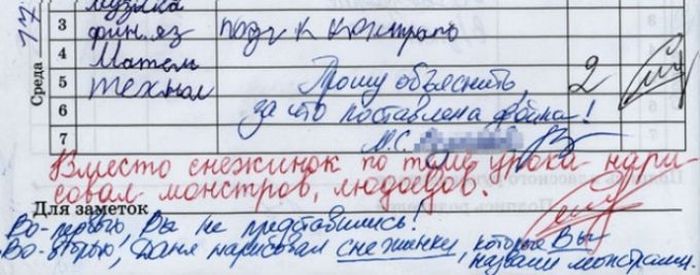 17
Среда
музыка
3 фин. яз подг к контрало
4 Матем
5 технол Прошу объяснить, 2
6 за что поставлена двойка!
7 М.С.
Вместо снежинок по теме урока нари
совал монстров, людоедов.
Для заметок
Во-первых, Вы не представились!
Во-вторых, Даня нарисовал снежинки, которые Вы
назвали монстрами.